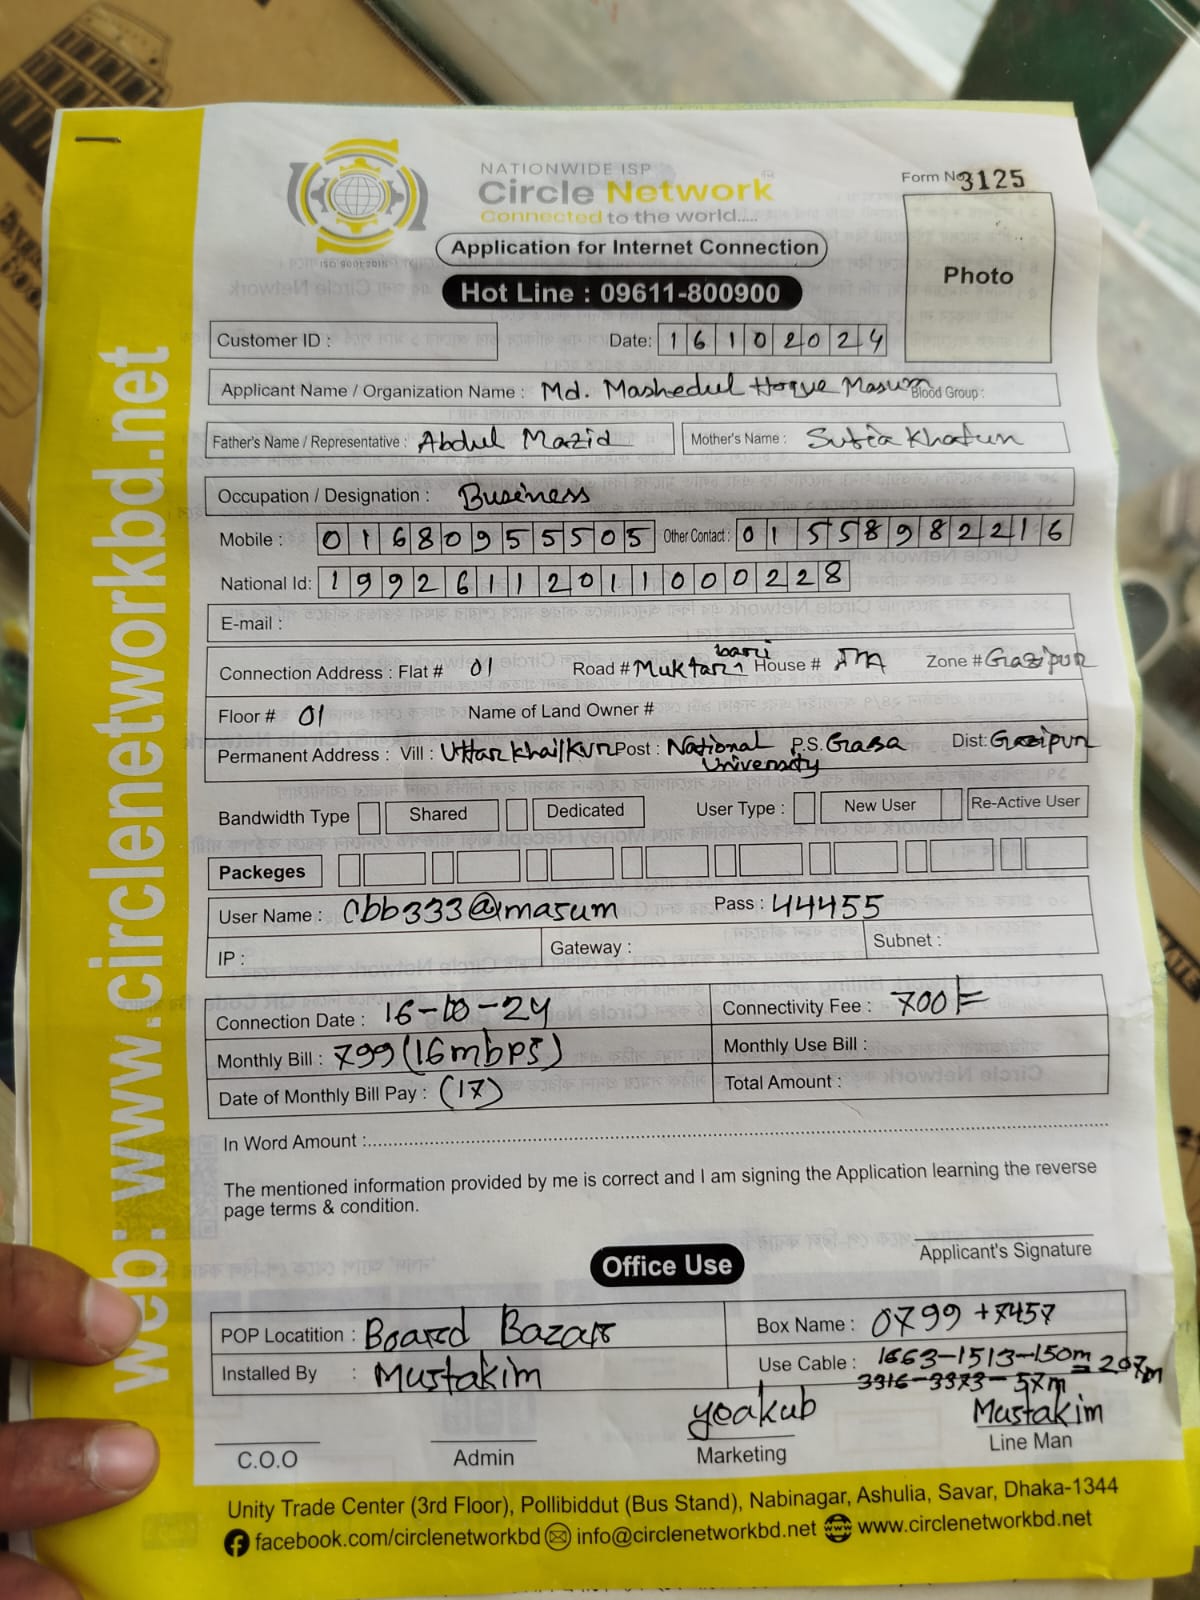 NATIONWIDE ISP
Circle Network
Connected to the world.....
ISO 9001:2015
Form No 3125
Application for Internet Connection
Hot Line : 09611-800900
Photo
Customer ID :
Date: 16102024
Applicant Name / Organization Name : Md. Mashedul Hoque Masum Blood Group :
Father's Name / Representative : Abdul Mazid Mother's Name : Sufia Khatun
Occupation / Designation : Business
Mobile : 01680955505 Other Contact : 01558982216
National Id: 19926112011000228
E-mail :
Connection Address : Flat # 01 Road # Muktar bari House # Zone # Gazipur
Floor # 01 Name of Land Owner #
Permanent Address : Vill : Uttar Khailkur Post : National University P.S. Gasa Dist: Gazipur
Bandwidth Type Shared Dedicated User Type : New User Re-Active User
Packeges
User Name : Cbb333@masum Pass : 44455
IP : Gateway : Subnet :
Connection Date : 16-10-24 Connectivity Fee : 700/=
Monthly Bill : 799 (16mbps) Monthly Use Bill :
Date of Monthly Bill Pay : (17) Total Amount :
In Word Amount :
The mentioned information provided by me is correct and I am signing the Application learning the reverse
page terms & condition.
Applicant's Signature
Office Use
POP Locatition : Board Bazar Box Name : 0799 + 7457
Installed By : Mustakim Use Cable : 1663-1513-150m
3316-3373-57m = 207m
yeakub Mustakim
C.O.O Admin Marketing Line Man
Unity Trade Center (3rd Floor), Pollibiddut (Bus Stand), Nabinagar, Ashulia, Savar, Dhaka-1344
facebook.com/circlenetworkbd info@circlenetworkbd.net www.circlenetworkbd.net
web: www.circlenetworkbd.net